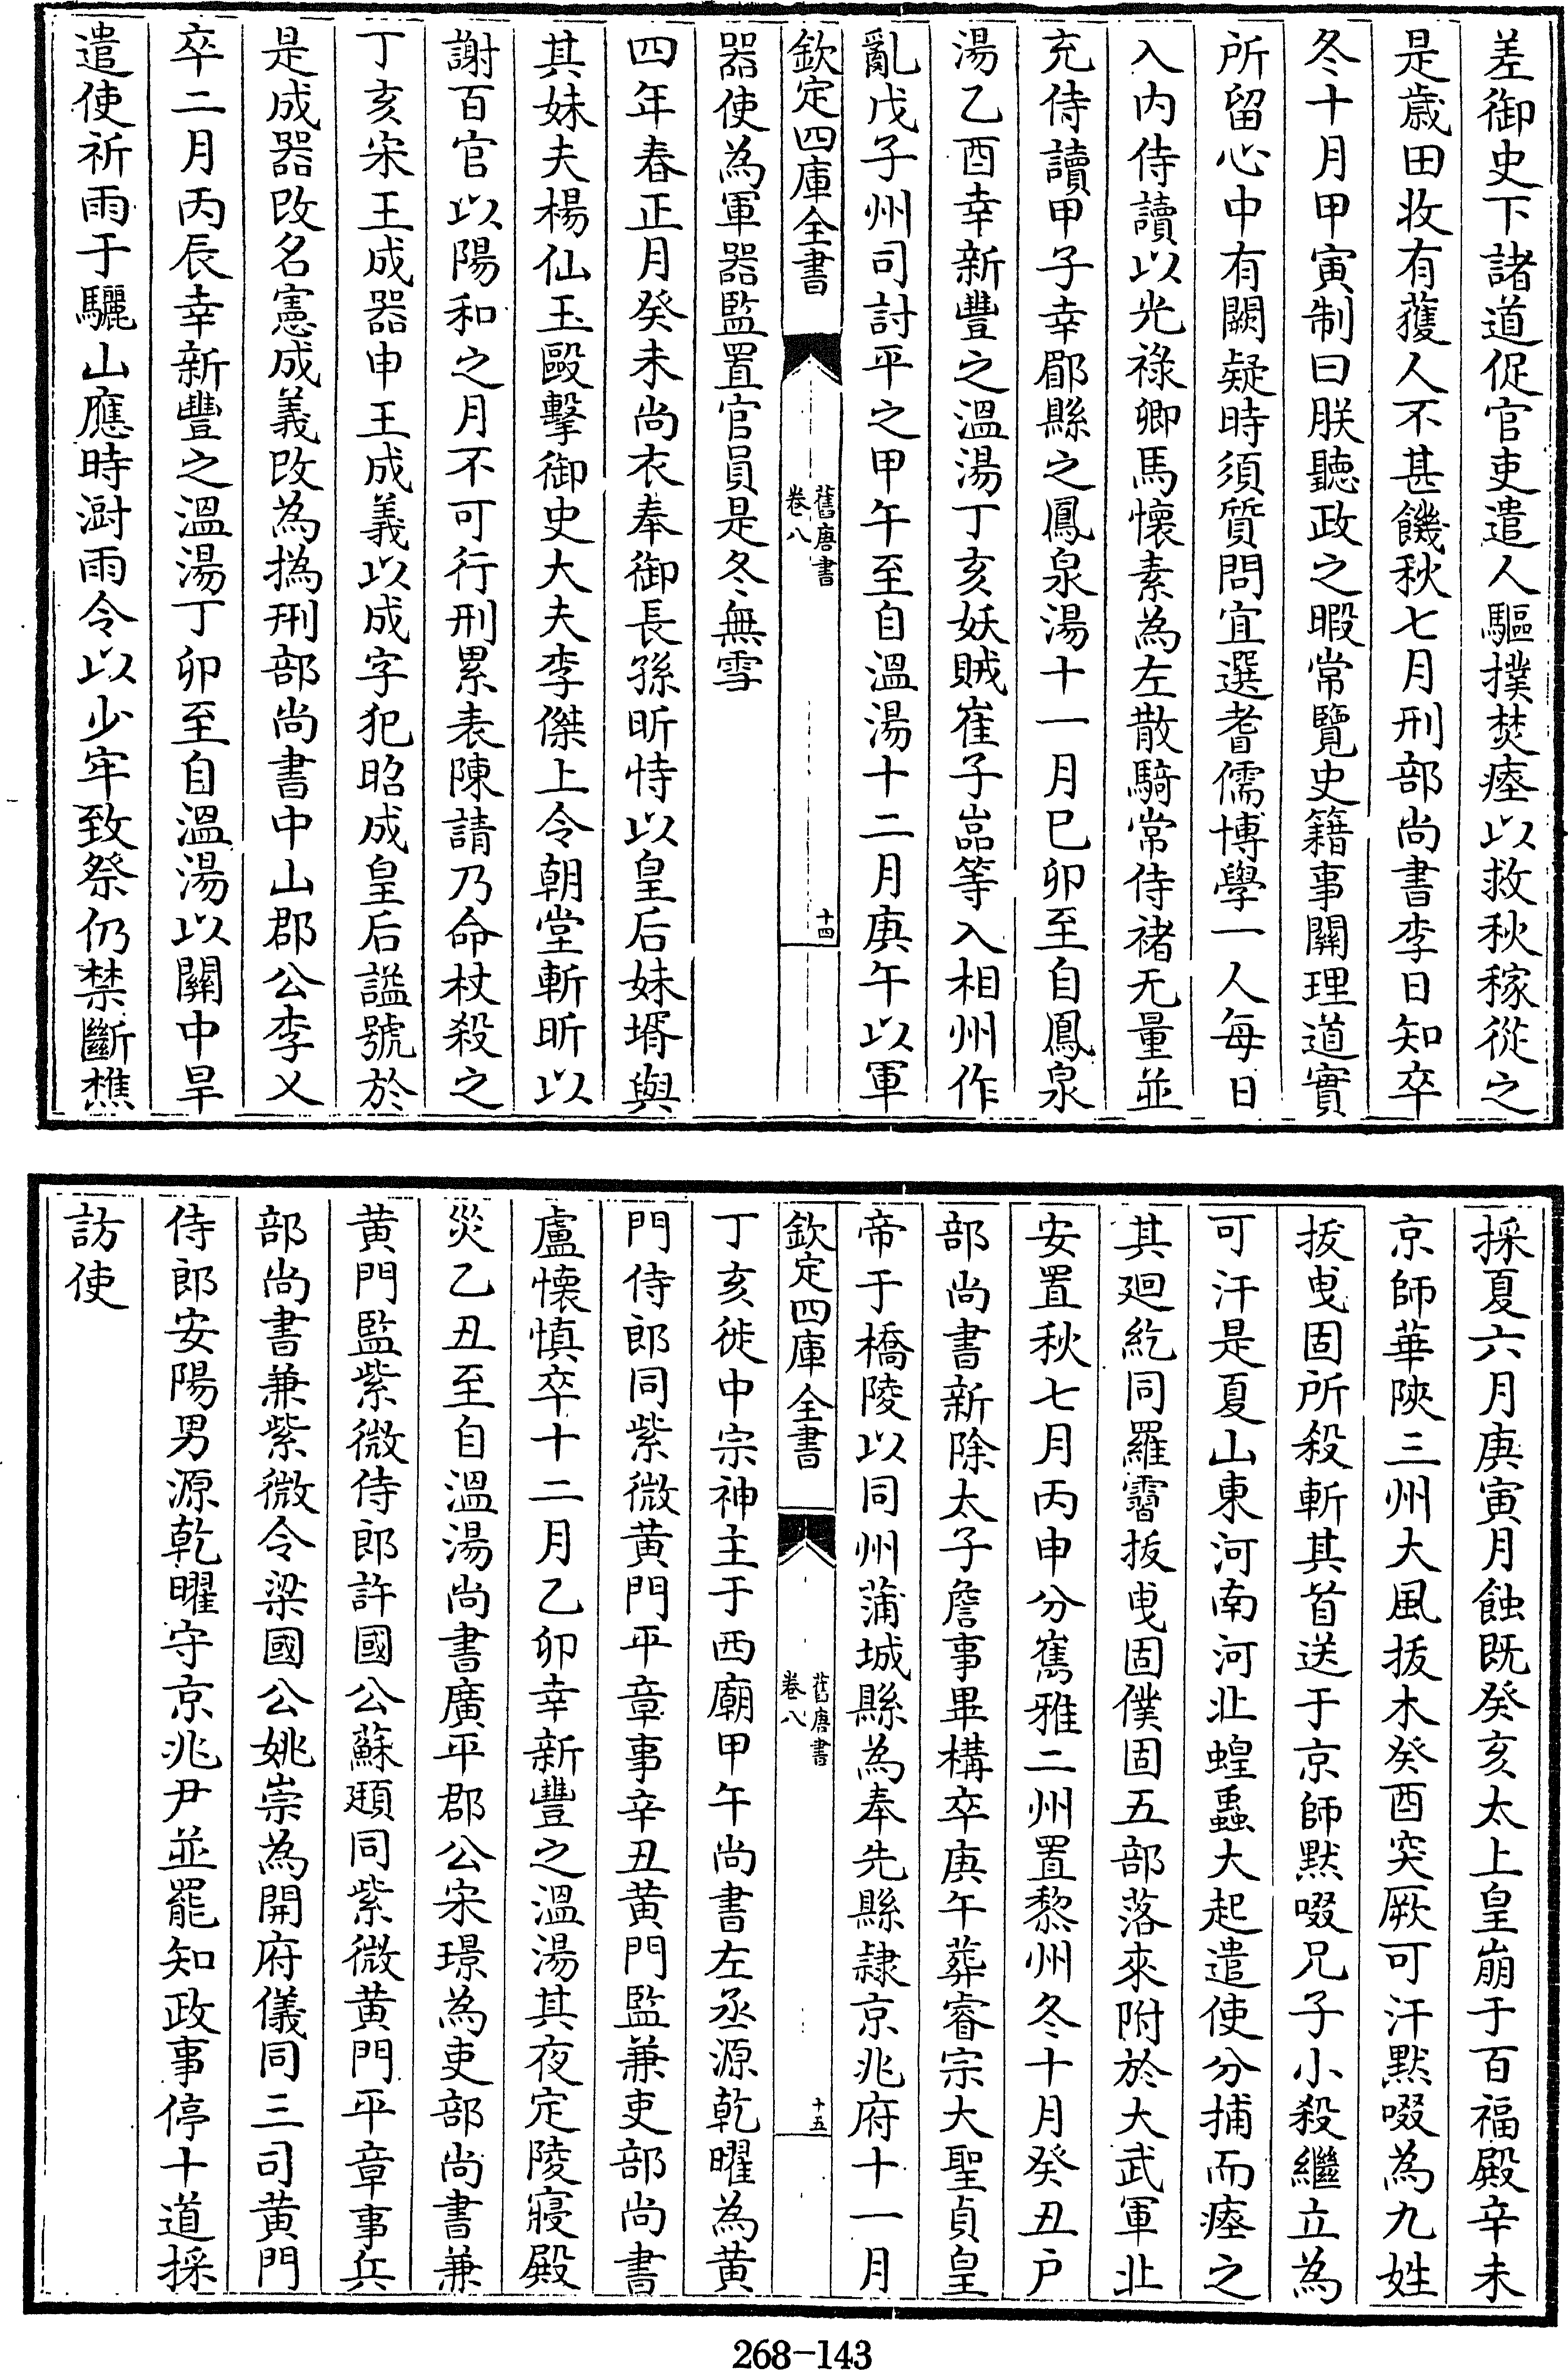 差御史下諸道促官吏遣人驅撲焚瘞以救秋稼從之
是歲田收有獲人不甚饑秋七月刑部尚書李日知卒
冬十月甲寅制曰朕聽政之暇常覽史籍事關理道實
所留心中有闕疑時須質問宜選耆儒博學一人每日
入内侍讀以光祿卿馬懷素為左散騎常侍褚无量並
充侍讀甲子幸郿縣之鳳泉湯十一月巳卯至自鳳泉
湯乙酉幸新豐之溫湯丁亥妖賊崔子嵓等入相州作
亂戊子州司討平之甲午至自溫湯十二月庚午以軍
欽定四庫全書
舊唐書
卷八
十四
器使為軍器監置官員是冬無雪
四年春正月癸未尚衣奉御長孫昕恃以皇后妹壻與
其妹夫楊仙玉毆擊御史大夫李傑上令朝堂斬昕以
謝百官以陽和之月不可行刑累表陳請乃命杖殺之
丁亥宋王成器申王成義以成字犯昭成皇后諡號於
是成器改名憲成義改為撝刑部尚書中山郡公李乂
卒二月丙辰幸新豐之溫湯丁卯至自溫湯以關中旱
遣使祈雨于驪山應時澍雨令以少牢致祭仍禁斷樵
採夏六月庚寅月蝕既癸亥太上皇崩于百福殿辛未
京師華陝三州大風拔木癸酉突厥可汗默啜為九姓
拔曳固所殺斬其首送于京師默啜兄子小殺繼立為
可汗是夏山東河南河北蝗蟲大起遣使分捕而瘞之
其廻紇同羅霫拔曳固僕固五部落來附於大武軍北
安置秋七月丙申分雟雅二州置黎州冬十月癸丑户
部尚書新除太子詹事畢構卒庚午葬睿宗大聖貞皇
帝于橋陵以同州蒲城縣為奉先縣隷京兆府十一月
欽定四庫全書
舊唐書
卷八
十五
丁亥徙中宗神主于西廟甲午尚書左丞源乾曜為黄
門侍郎同紫微黄門平章事辛丑黄門監兼吏部尚書
盧懷慎卒十二月乙卯幸新豐之溫湯其夜定陵寢殿
災乙丑至自溫湯尚書廣平郡公宋璟為吏部尚書兼
黄門監紫微侍郎許國公蘇頲同紫微黄門平章事兵
部尚書兼紫微令梁國公姚崇為開府儀同三司黄門
侍郎安陽男源乾曜守京兆尹並罷知政事停十道採
訪使
268-143